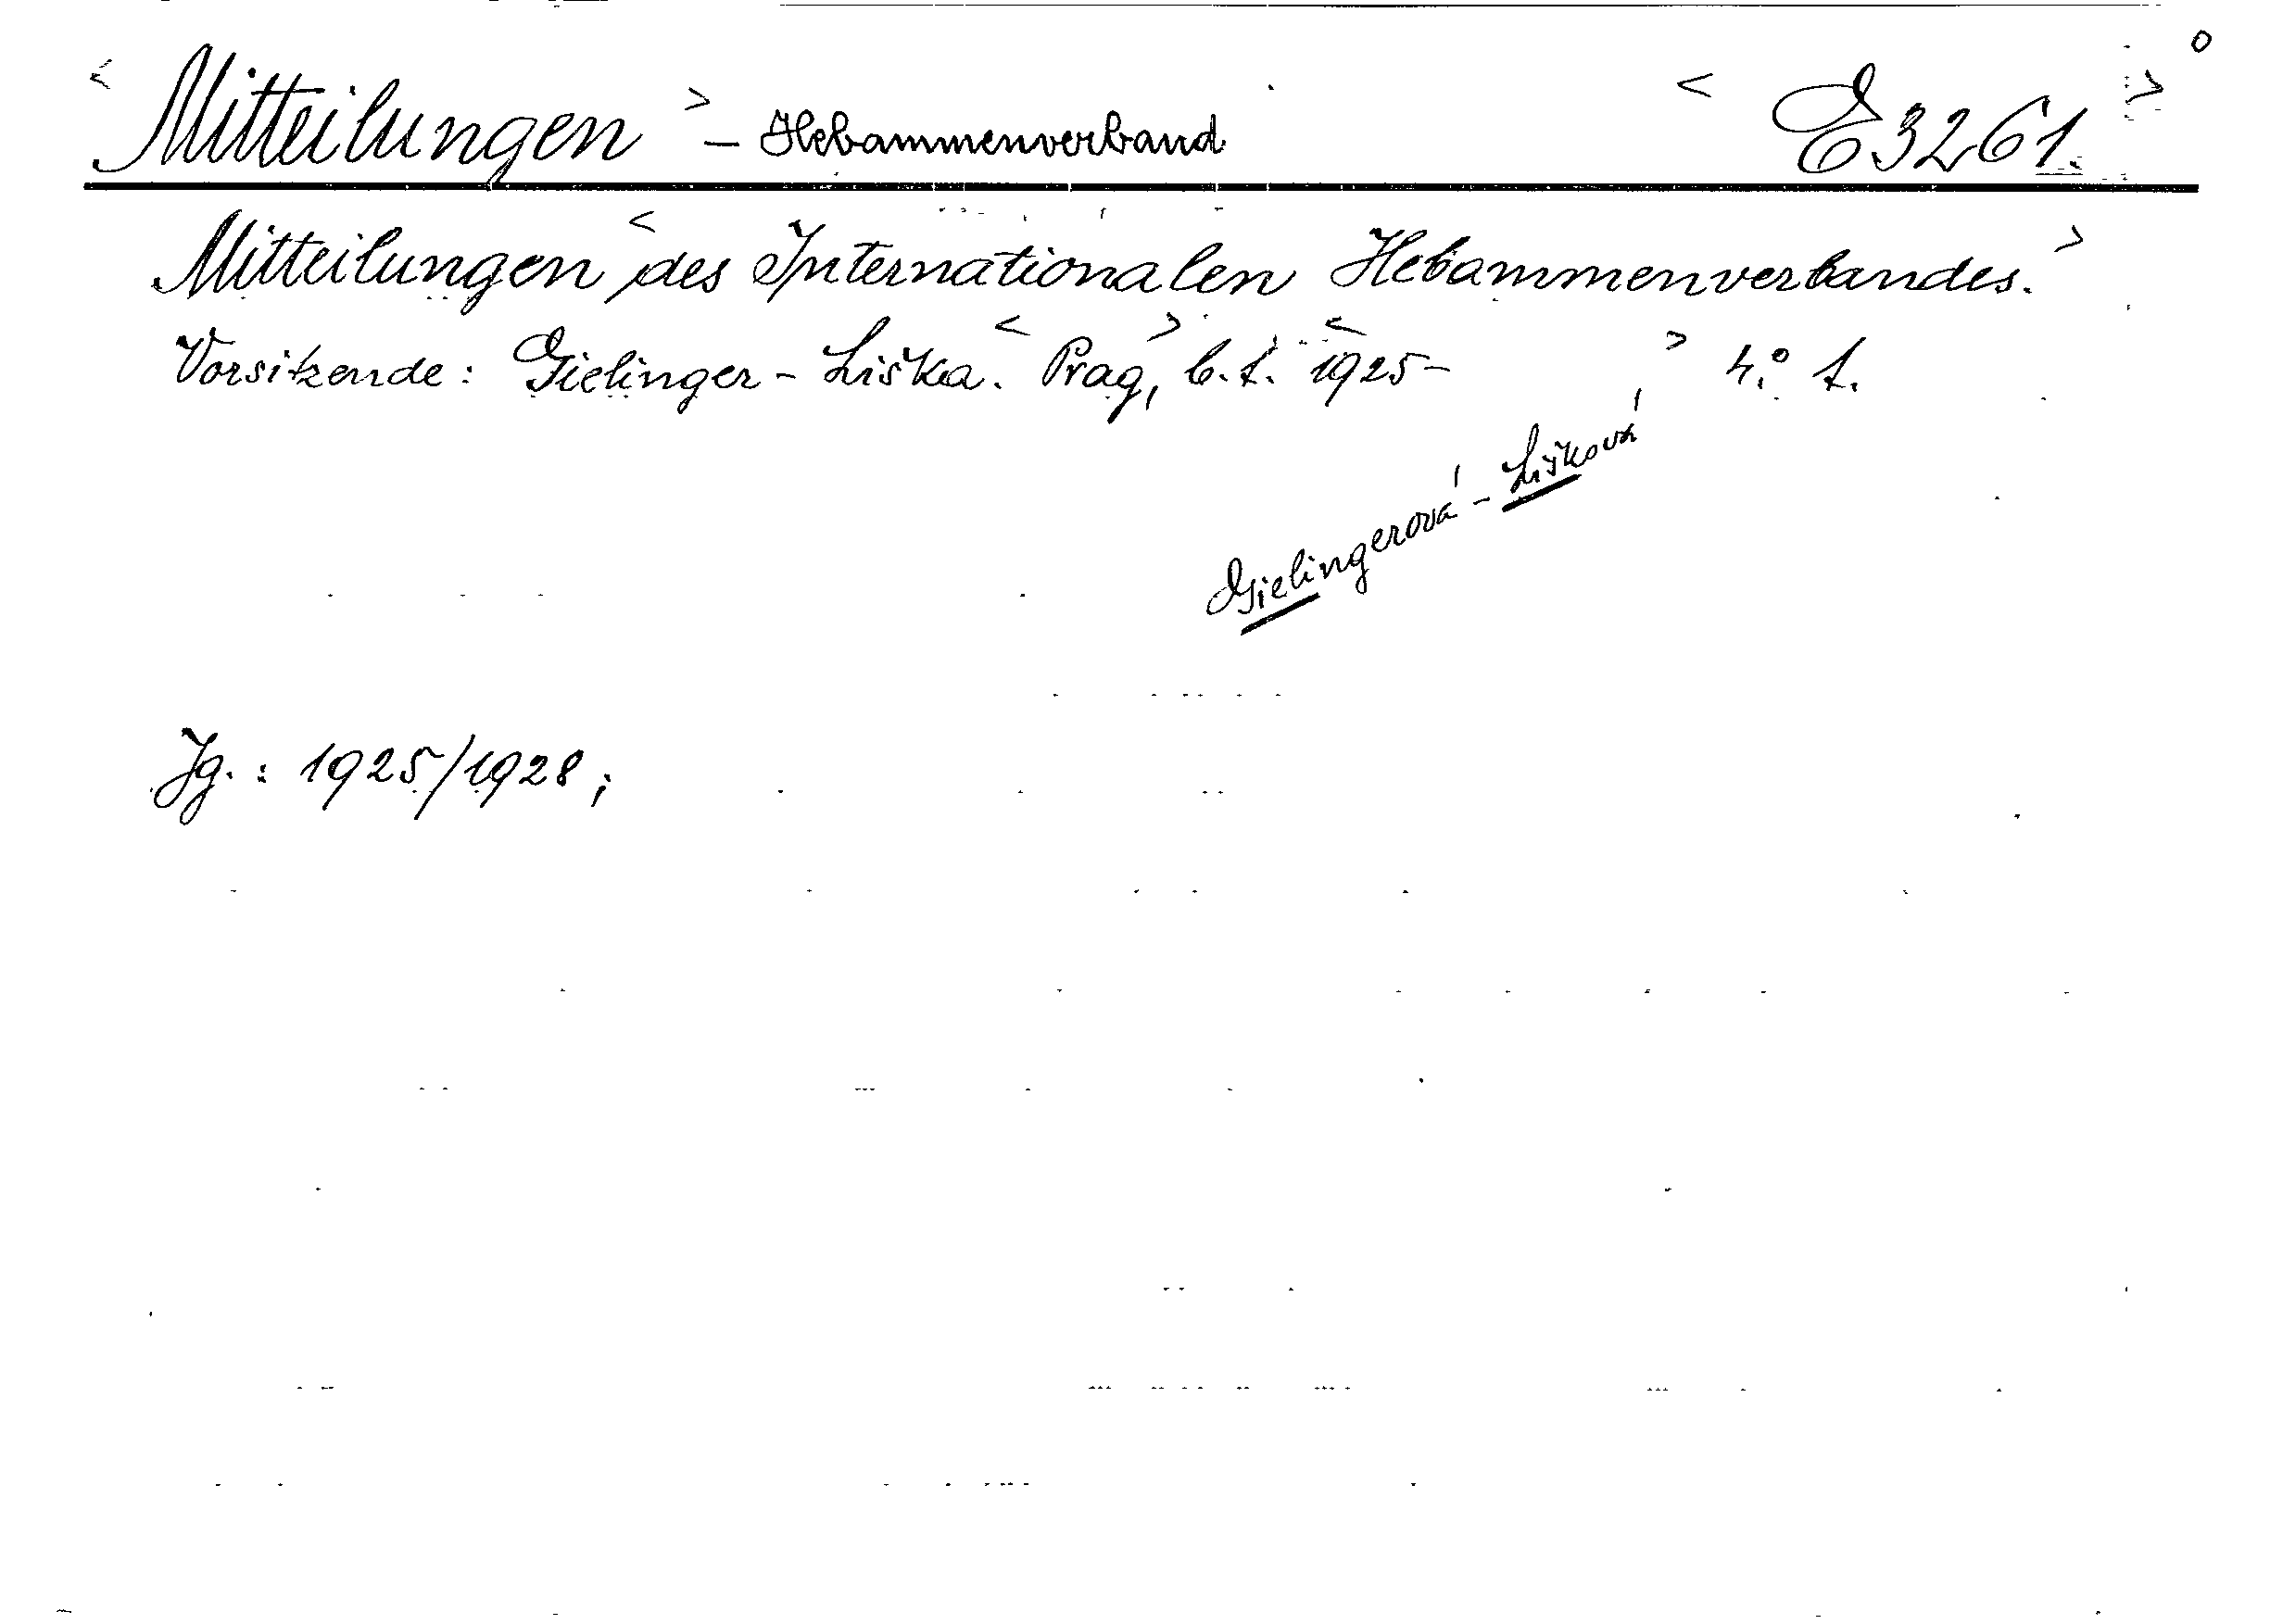 < Mitteilungen > – Hebammenverband < E 3261. >
Mitteilungen < des Internationalen Hebammenverbandes. >
Vorsitzende: Gielinger - Liška. < Prag, > b. t. < 1925 – > 4.° t.
Gielingerová - Lišková
Jg.: 1925/1928;